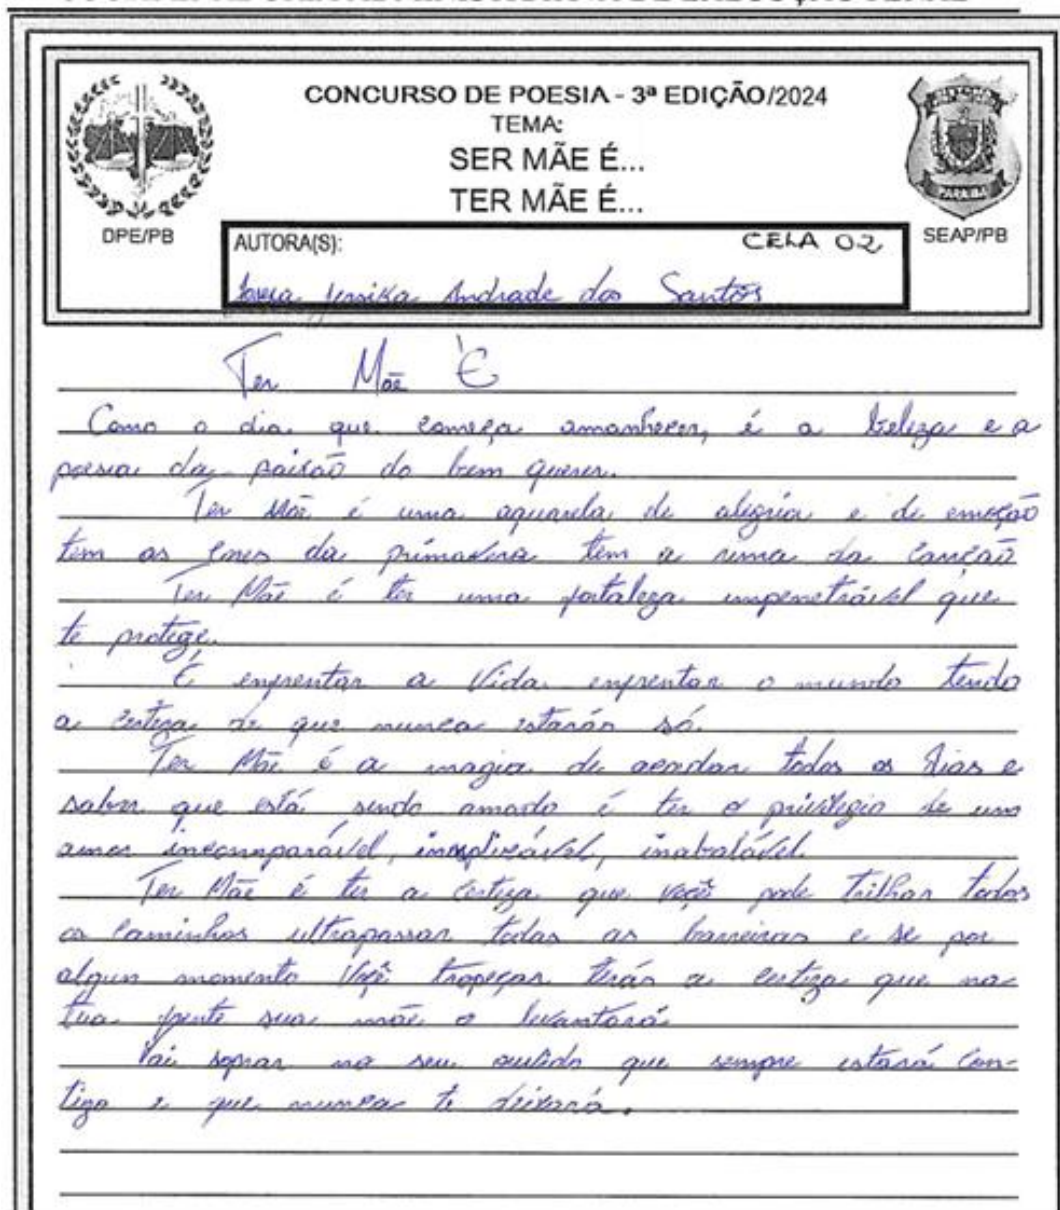 CONCURSO DE POESIA - 3ª EDIÇÃO/2024
TEMA:
SER MÃE É...
TER MÃE É...
DPE/PB
PARAÍBA
SEAP/PB
AUTORA(S):
CELA 02
Andrade dos Santos
Ter Mãe É
Como o dia que começa amanhecer, é a beleza e a
poesia da paixão do bem querer.
Ter Mãe é uma aquarela de alegria e de emoção
tem as cores da primavera tem a rima da canção
Ter Mãe é ter uma fortaleza impenetrável que
te protege.
É enfrentar a Vida enfrentar o mundo tendo
a certeza de que nunca estarás só.
Ter Mãe é a magia de acordar todos os dias e
saber que está sendo amado é ter o privilegio de um
amor incomparável, inexplicável, inabalável.
Ter Mãe é ter a certeza que você pode trilhar todos
os caminhos ultrapassar todas as barreiras e se por
algun momento Você tropeçar terás a certeza que na
tua frente sua mãe o levantará
Vai soprar no seu ouvido que sempre estará con-
tigo e que nunca te deixará.